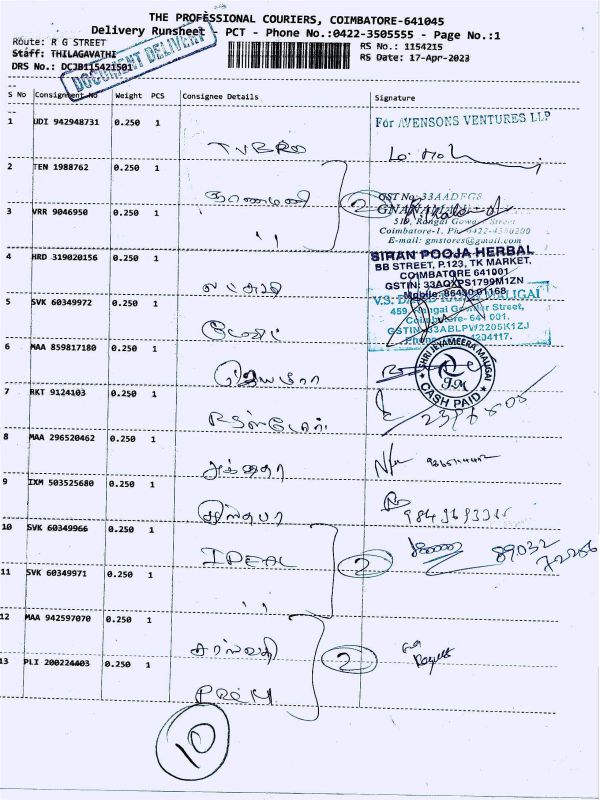 THE PROFESSIONAL COURIERS, COIMBATORE-641045
Delivery Runsheet - PCT - Phone No.:0422-3505555 - Page No.:1
Route: R G STREET
RS No.: 1154215
Staff: THILAGAVATHI
RS Date: 17-Apr-2023
DRS No.: DCJB115421501
DOCUMENT DELIVERY
S No Consignment No Weight PCS Consignee Details Signature
1 UDI 942948731 0.250 1
For AVENSONS VENTURES LLP
2 TEN 1988762 0.250 1
2
3 VRR 9046950 0.250 1
GST No: 33AADFG8
519, Rangai Gowder Street
Coimbatore-1. Ph: 0422-4380200
E-mail: gmstores@gmail.com
4 HRD 319020156 0.250 1
SIRAN POOJA HERBAL
BB STREET, P.123, TK MARKET,
COIMBATORE 641001
GSTIN: 33AQXPS1799M1ZN
5 SVK 60349972 0.250 1
459, Rangai Gowder Street,
Coimbatore- 641 001.
GSTIN:33ABLPV2205K1ZJ
6 MAA 859817180 0.250 1
SHRI JEYAMEERA MALIGAI
JM
CASH PAID
7 RKT 9124103 0.250 1
8 MAA 296520462 0.250 1
9 IXM 503525680 0.250 1
10 SVK 60349966 0.250 1
IDEAL
2
89032
72256
11 SVK 60349971 0.250 1
12 MAA 942597070 0.250 1
சரஸ்வதி
2
13 PLI 200224403 0.250 1
10